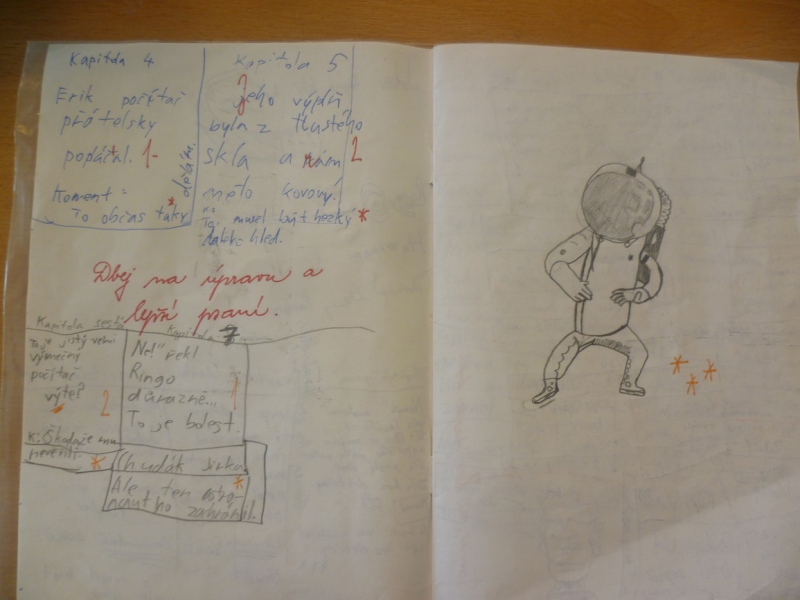 Kapitola 4
Erik počítač
přátelsky
popláčal. 1-
dělám.
Koment:
To občas taky
Kapitola 5
Jeho výpln
byla z tlustého
skla a rám 2
mělo kovový.
To musel být hezký
daleko hled.
Dbej na úpravu a
lepší psaní.
Kapitola šestá
To je jistý velmi
výjimečný
počítač
výte? 2
K: Škoda že mu
nevěřili.
Kapitola 7
Ne!" řekl
Ringo
důrazně... 1
To je bolest.
Chudák Jirka
Ale ten astro
naut ho zahránil.